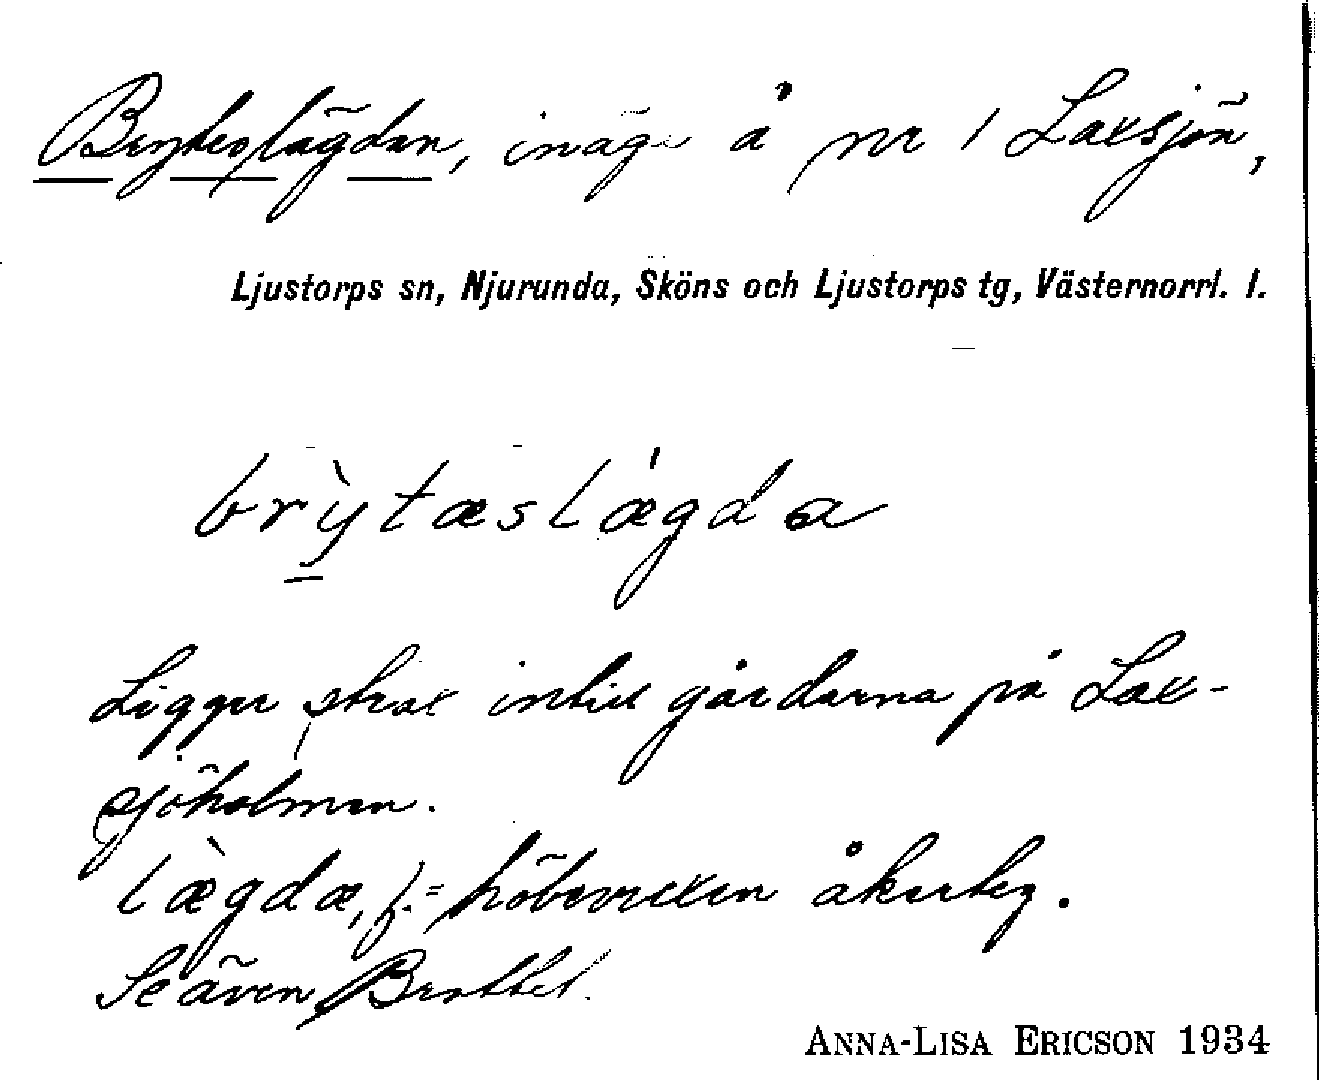 Bryteslägdan, inäga å nr 1 Laxsjön,
Ljustorps sn, Njurunda, Sköns och Ljustorps tg, Västernorrl. l.
brỳtæslǽgda
Ligger strax intill gårdarna på Lax-
sjöholmen.
lægdæ, f. = höbevuxen åkerteg.
Se även Brottet.
ANNA-LISA ERICSON 1934